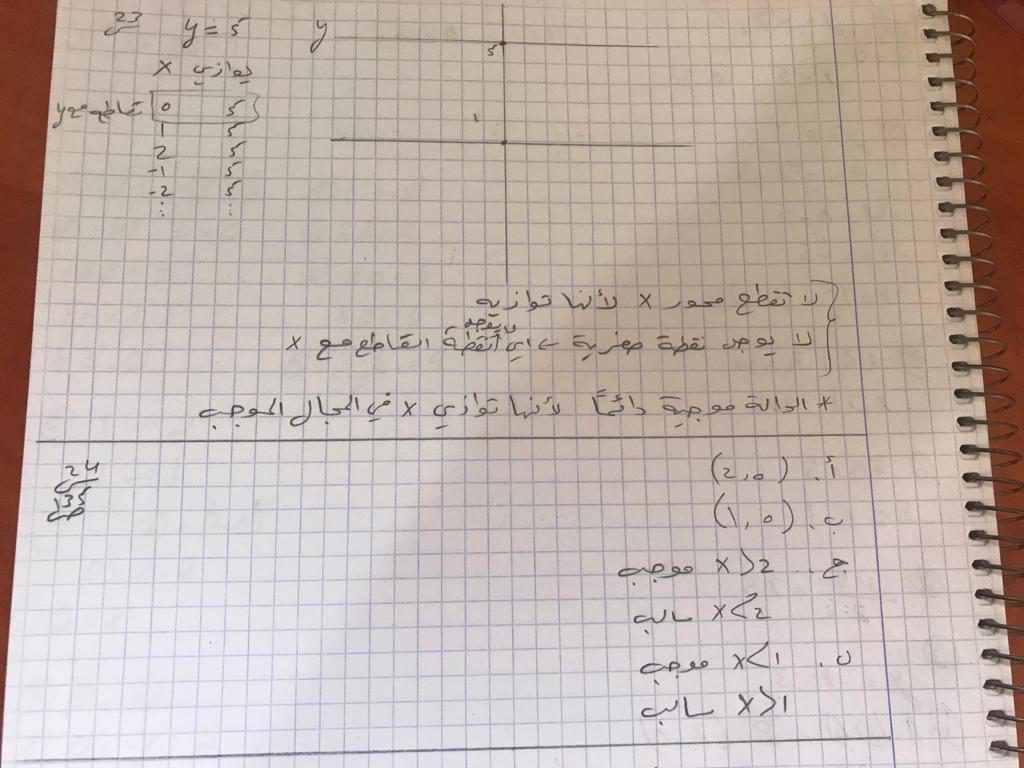 23 y = 5 y
5
x يوازي
تقاطع مع y 0 5
1 5
2 5
-1 5
-2 5
: :
لا تقطع محور x لأنها توازيه
لا يوجد نقطة صفرية ← أي نقطة التقاطع مع x
لا يوجد
* الدالة موجبة دائماً لأنها توازي x في المجال الموجب
24
35
أ. (2,0)
ب. (1,0)
ج. x>2 موجب
x<2 سالب
د. x<1 موجب
x>1 سالب